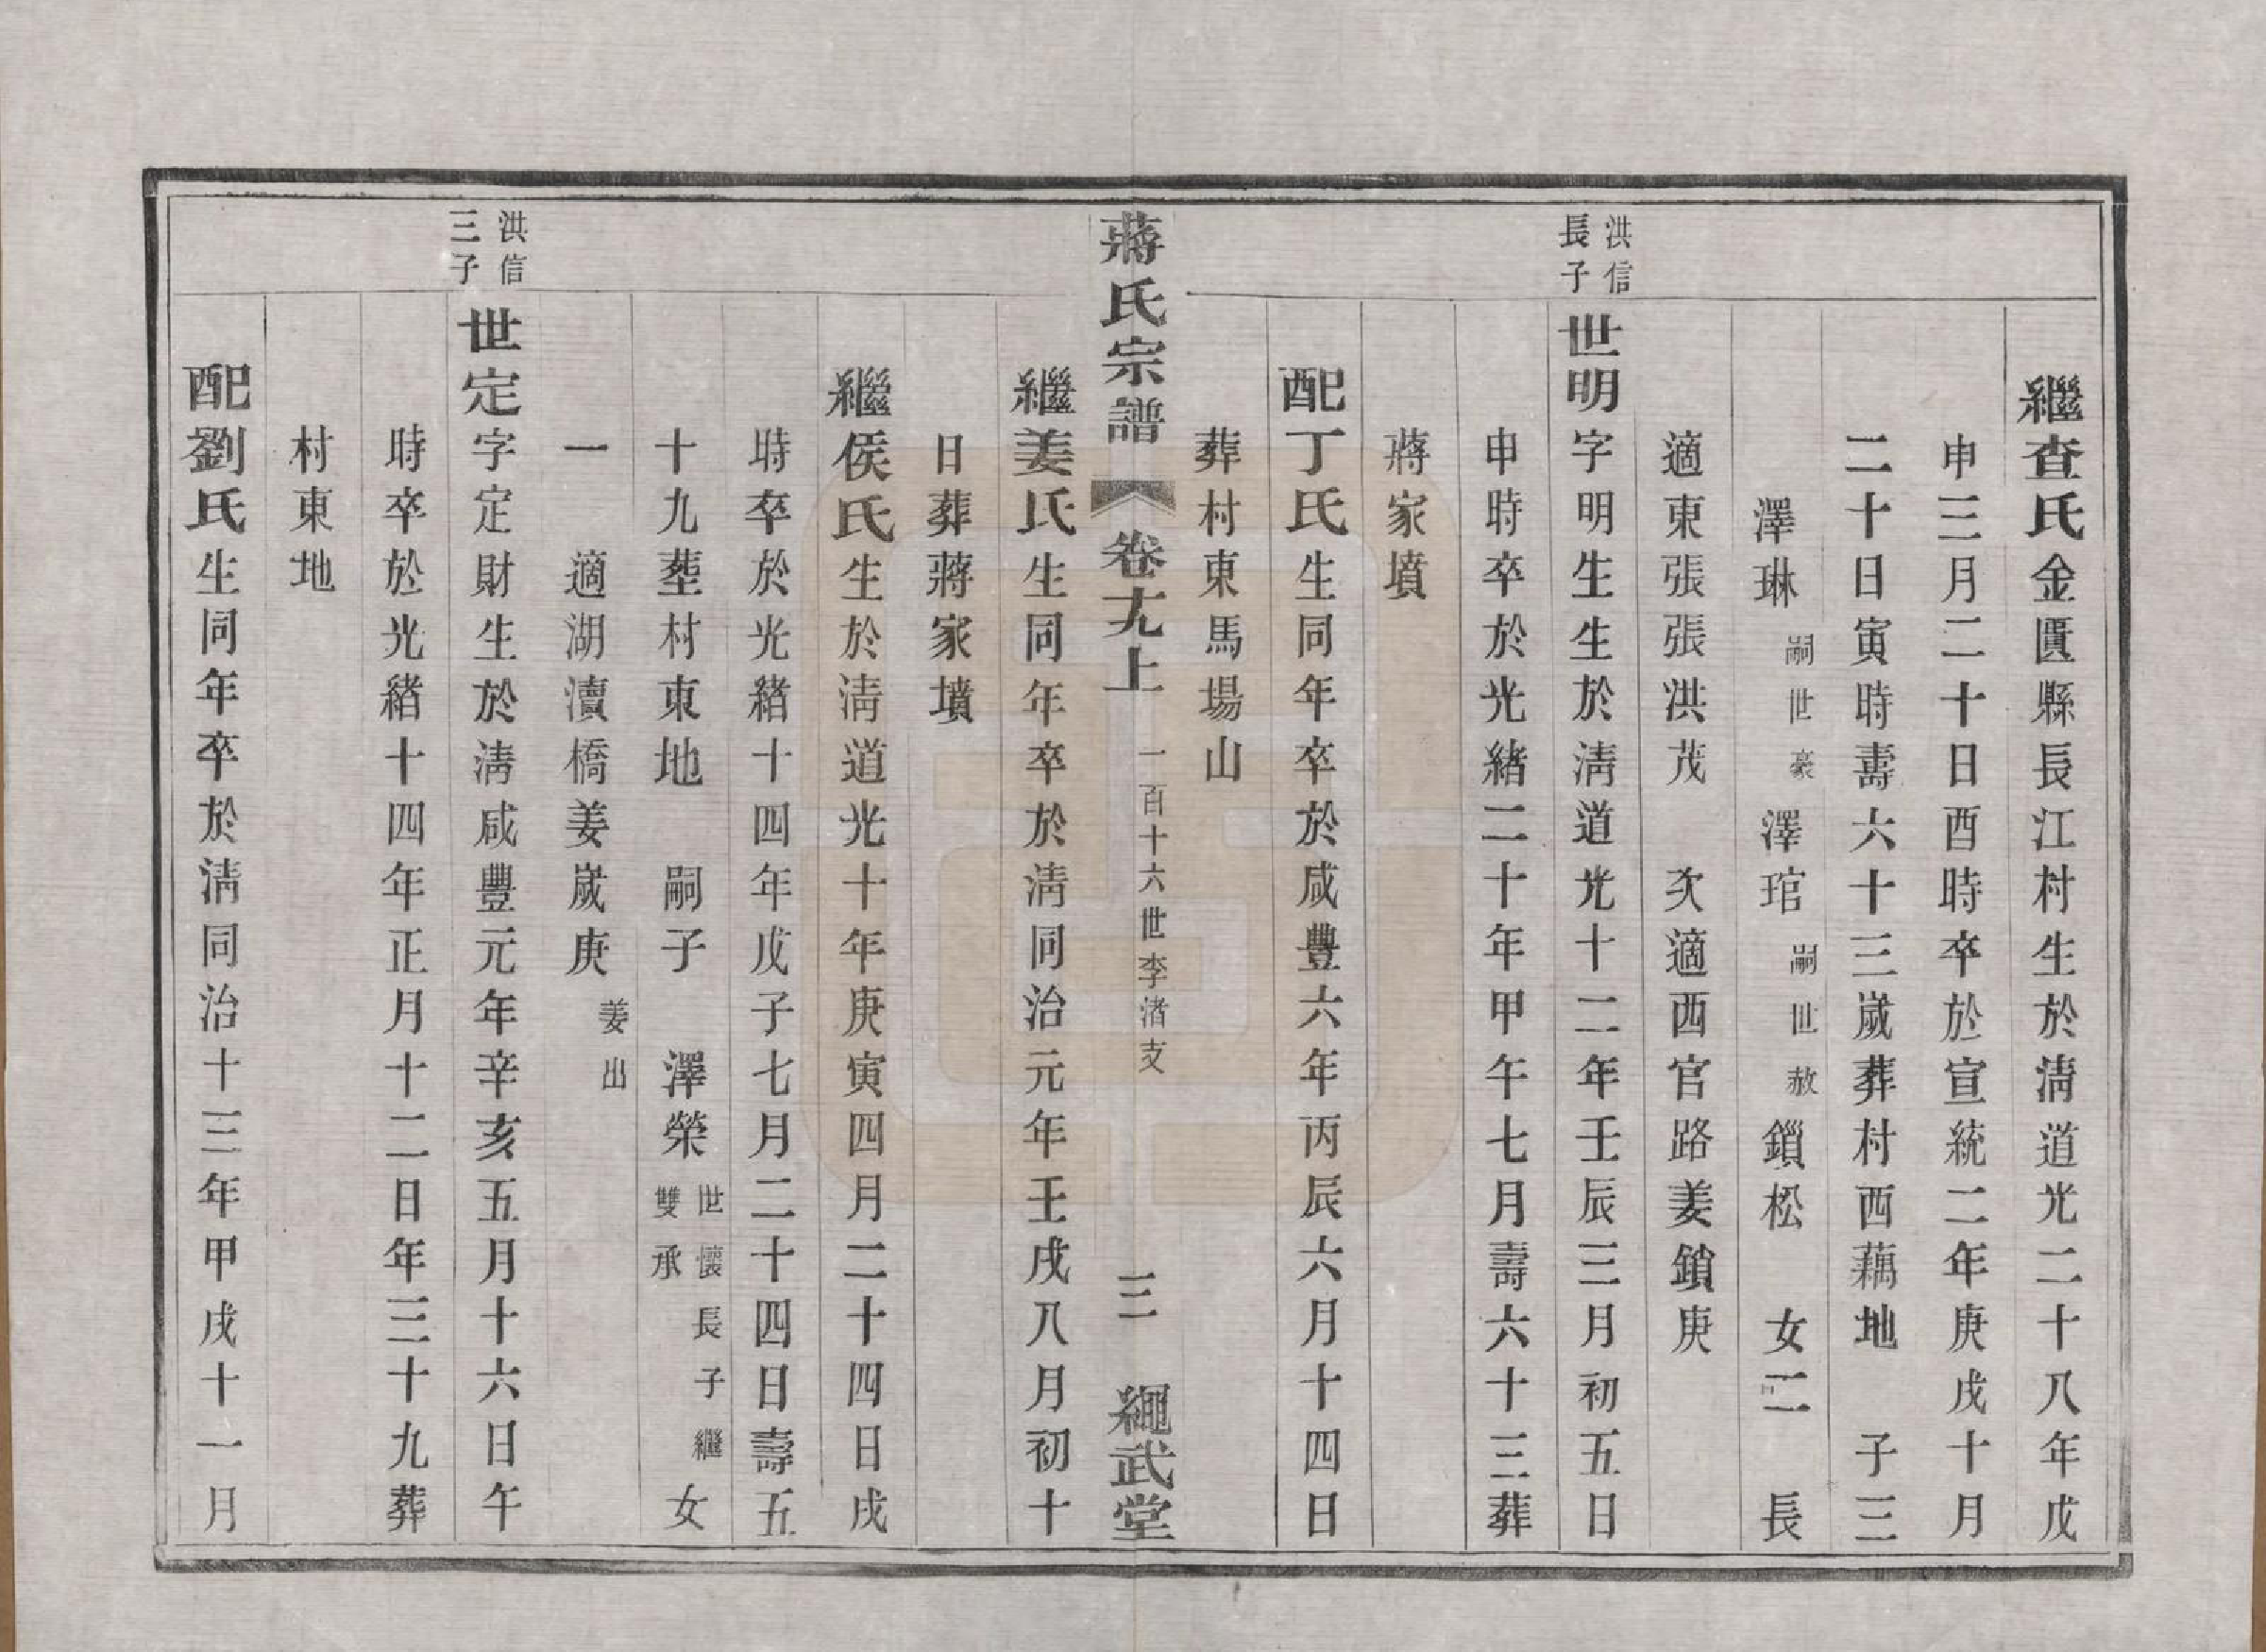 繼查氏金匱縣長江村生於淸道光二十八年戊
申三月二十日酉時卒於宣統二年庚戌十月
二十日寅時壽六十三歲葬村西藕地 子三
澤琳嗣世豪 澤琯嗣世赦 鎖松 女二 長
適東張張洪茂 次適西官路姜鎖庚
洪信長子
世明字明生生於淸道光十二年壬辰三月初五日
申時卒於光緒二十年甲午七月壽六十三葬
蔣家墳
配丁氏生同年卒於咸豐六年丙辰六月十四日
葬村東馬場山
蔣氏宗譜 卷九上 一百十六世李渚支 三 繩武堂
繼姜氏生同年卒於淸同治元年壬戌八月初十
日葬蔣家墳
繼侯氏生於淸道光十年庚寅四月二十四日戌
時卒於光緒十四年戊子七月二十四日壽五
十九塟村東地 嗣子 澤榮世懷長子繼雙承 女
一 適湖瀆橋姜歲庚姜出
洪信三子
世定字定財生於淸咸豐元年辛亥五月十六日午
時卒於光緒十四年正月十二日年三十九葬
村東地
配劉氏生同年卒於淸同治十三年甲戌十一月